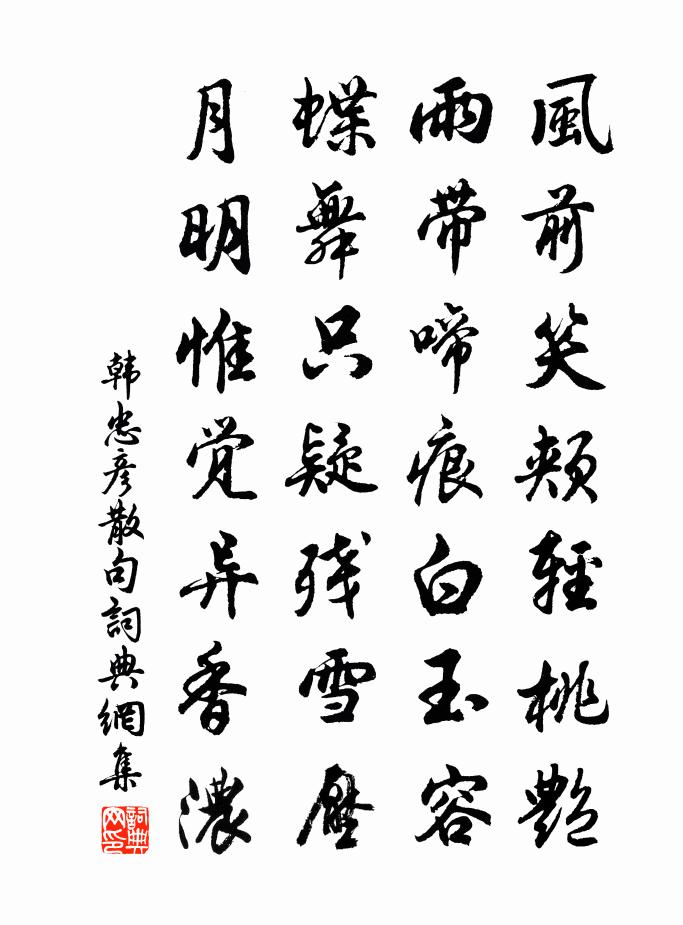 風前笑頰輕桃艷
雨带啼痕白玉容
蝶舞只疑残雪壓
月明惟觉异香濃
韩忠彦散句詞典網集
詞典网印